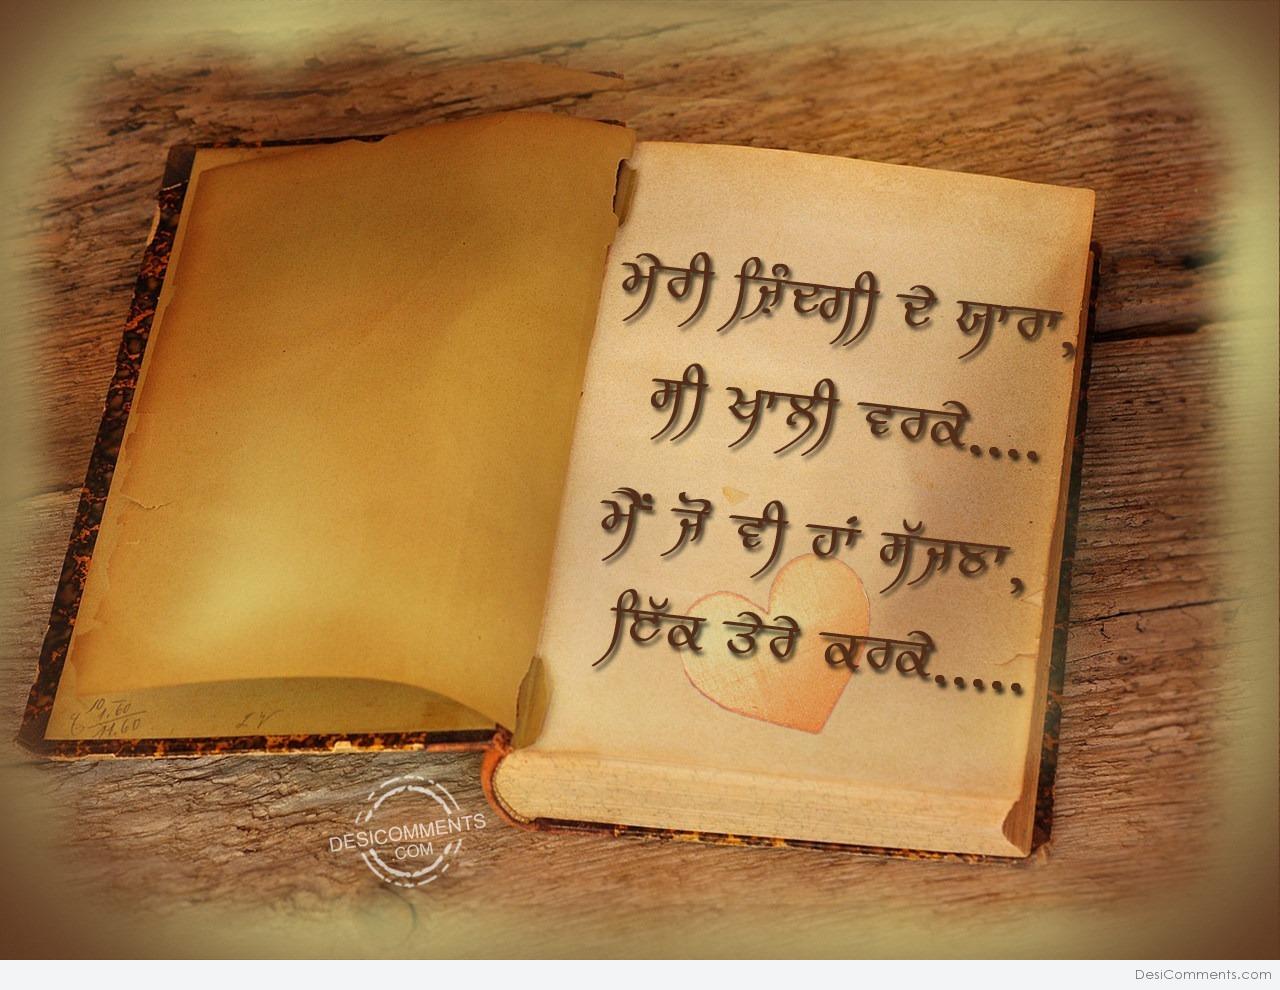 ਮੇਰੀ ਜ਼ਿੰਦਗੀ ਦੇ ਯਾਰਾ,
ਸੀ ਖਾਲੀ ਵਰਕੇ....
ਮੈਂ ਜੋ ਵੀ ਹਾਂ ਸੱਜਣਾ,
ਇੱਕ ਤੇਰੇ ਕਰਕੇ.....
DESICOMMENTS
.COM
DesiComments.com